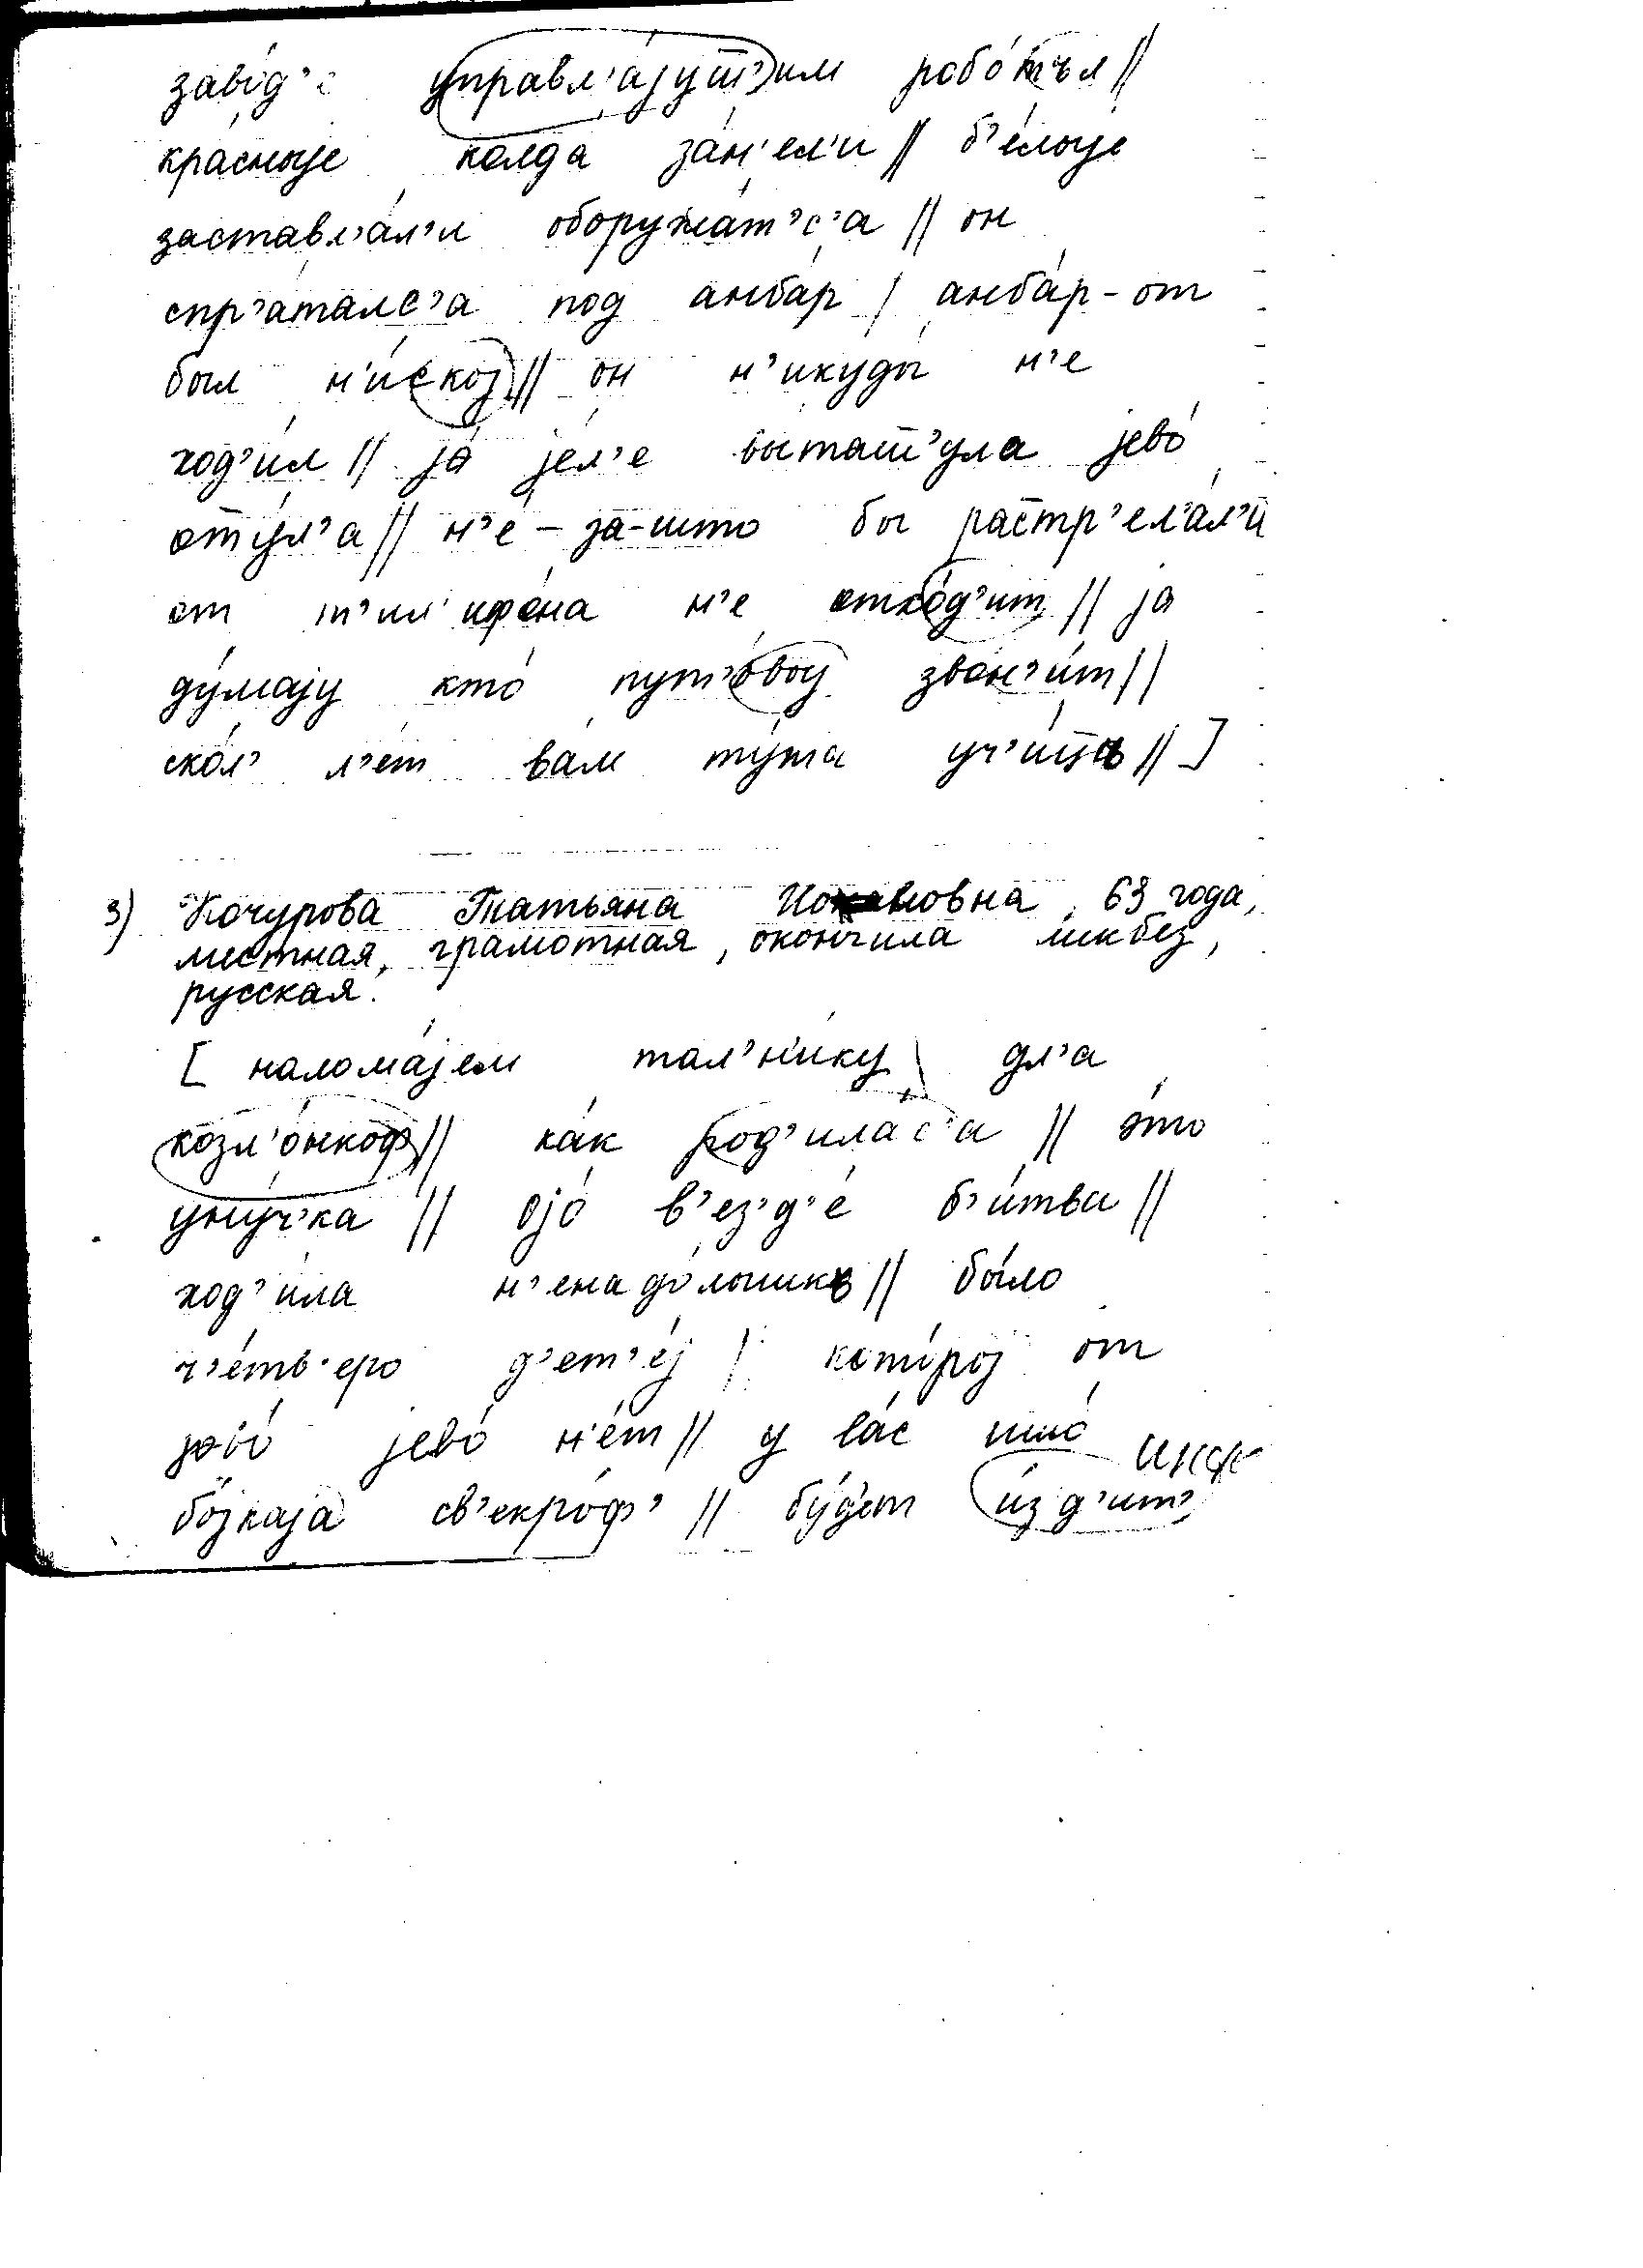 заво́д'е управл'а́јуш'им робо́тъл //
кра́сныје колда за́н'ел'и // б'е́лыје
заставл'а́л'и оборужа́т'с'а // он
спр'а́талс'а под анба́р / анба́р-от
был н'и́ској // он н'икуды́ н'е
ход'и́л // ја́ је́л'е выташ'ула јево́
оту́л'а // н'е́-за-што бы растр'ел'а́л'и
от т'ил'ифо́на н'е отхо́д'ит // ја
ду́мају кто́ пут'о́вој звон'и́т //
ско́л' л'е́т ва́м ту́та уч'и́тца // ]
3) Кочурова Татьяна 63 года,
местная, грамотная, окончила ликбез,
русская.
[ налома́јем тал'н'ику́ \ дл'а
козл'о́нкоф // ка́к род'ила́с'а // э́то
уну́ч'ка // ојо́ в'ез'д'е́ б'и́тва //
ход'и́ла н'енадо́лышкъ // бы́ло
ч'е́тв'еро д'ет'е́ј / кото́рој от
јово́ јево́ н'е́т // у ва́с шшо́
бо́јкаја св'екро́ф' // бу́д'ет и́зд'ит'